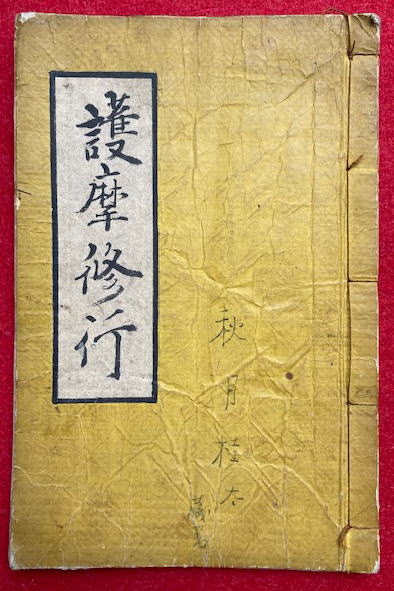 護摩修行
秋月桂太
蔵書